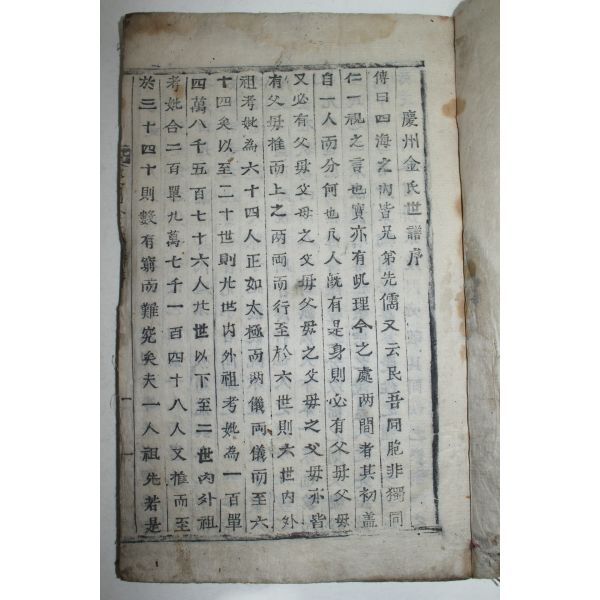 慶州金氏世譜序
傳曰四海之內皆兄弟先儒又云民吾同胞非獨同
仁一視之言也實亦有此理今之處两間者其初盖
自一人而分何也凡人旣有是身則必有父母父母
又必有父母父母之父母父母之父母之父母亦皆
有父母推而上之两両而行至於六世則六世內外
祖考妣為六十四人正如太極而两儀両儀而至六
十四矣以至二十世則卄世內外祖考妣為一百單
四萬八千五百七十六人卄世以下至二世內外祖
考妣合二百單九萬七千一百四十八人又推而至
於三十四十則數有窮而難究矣夫一人祖先若是
一